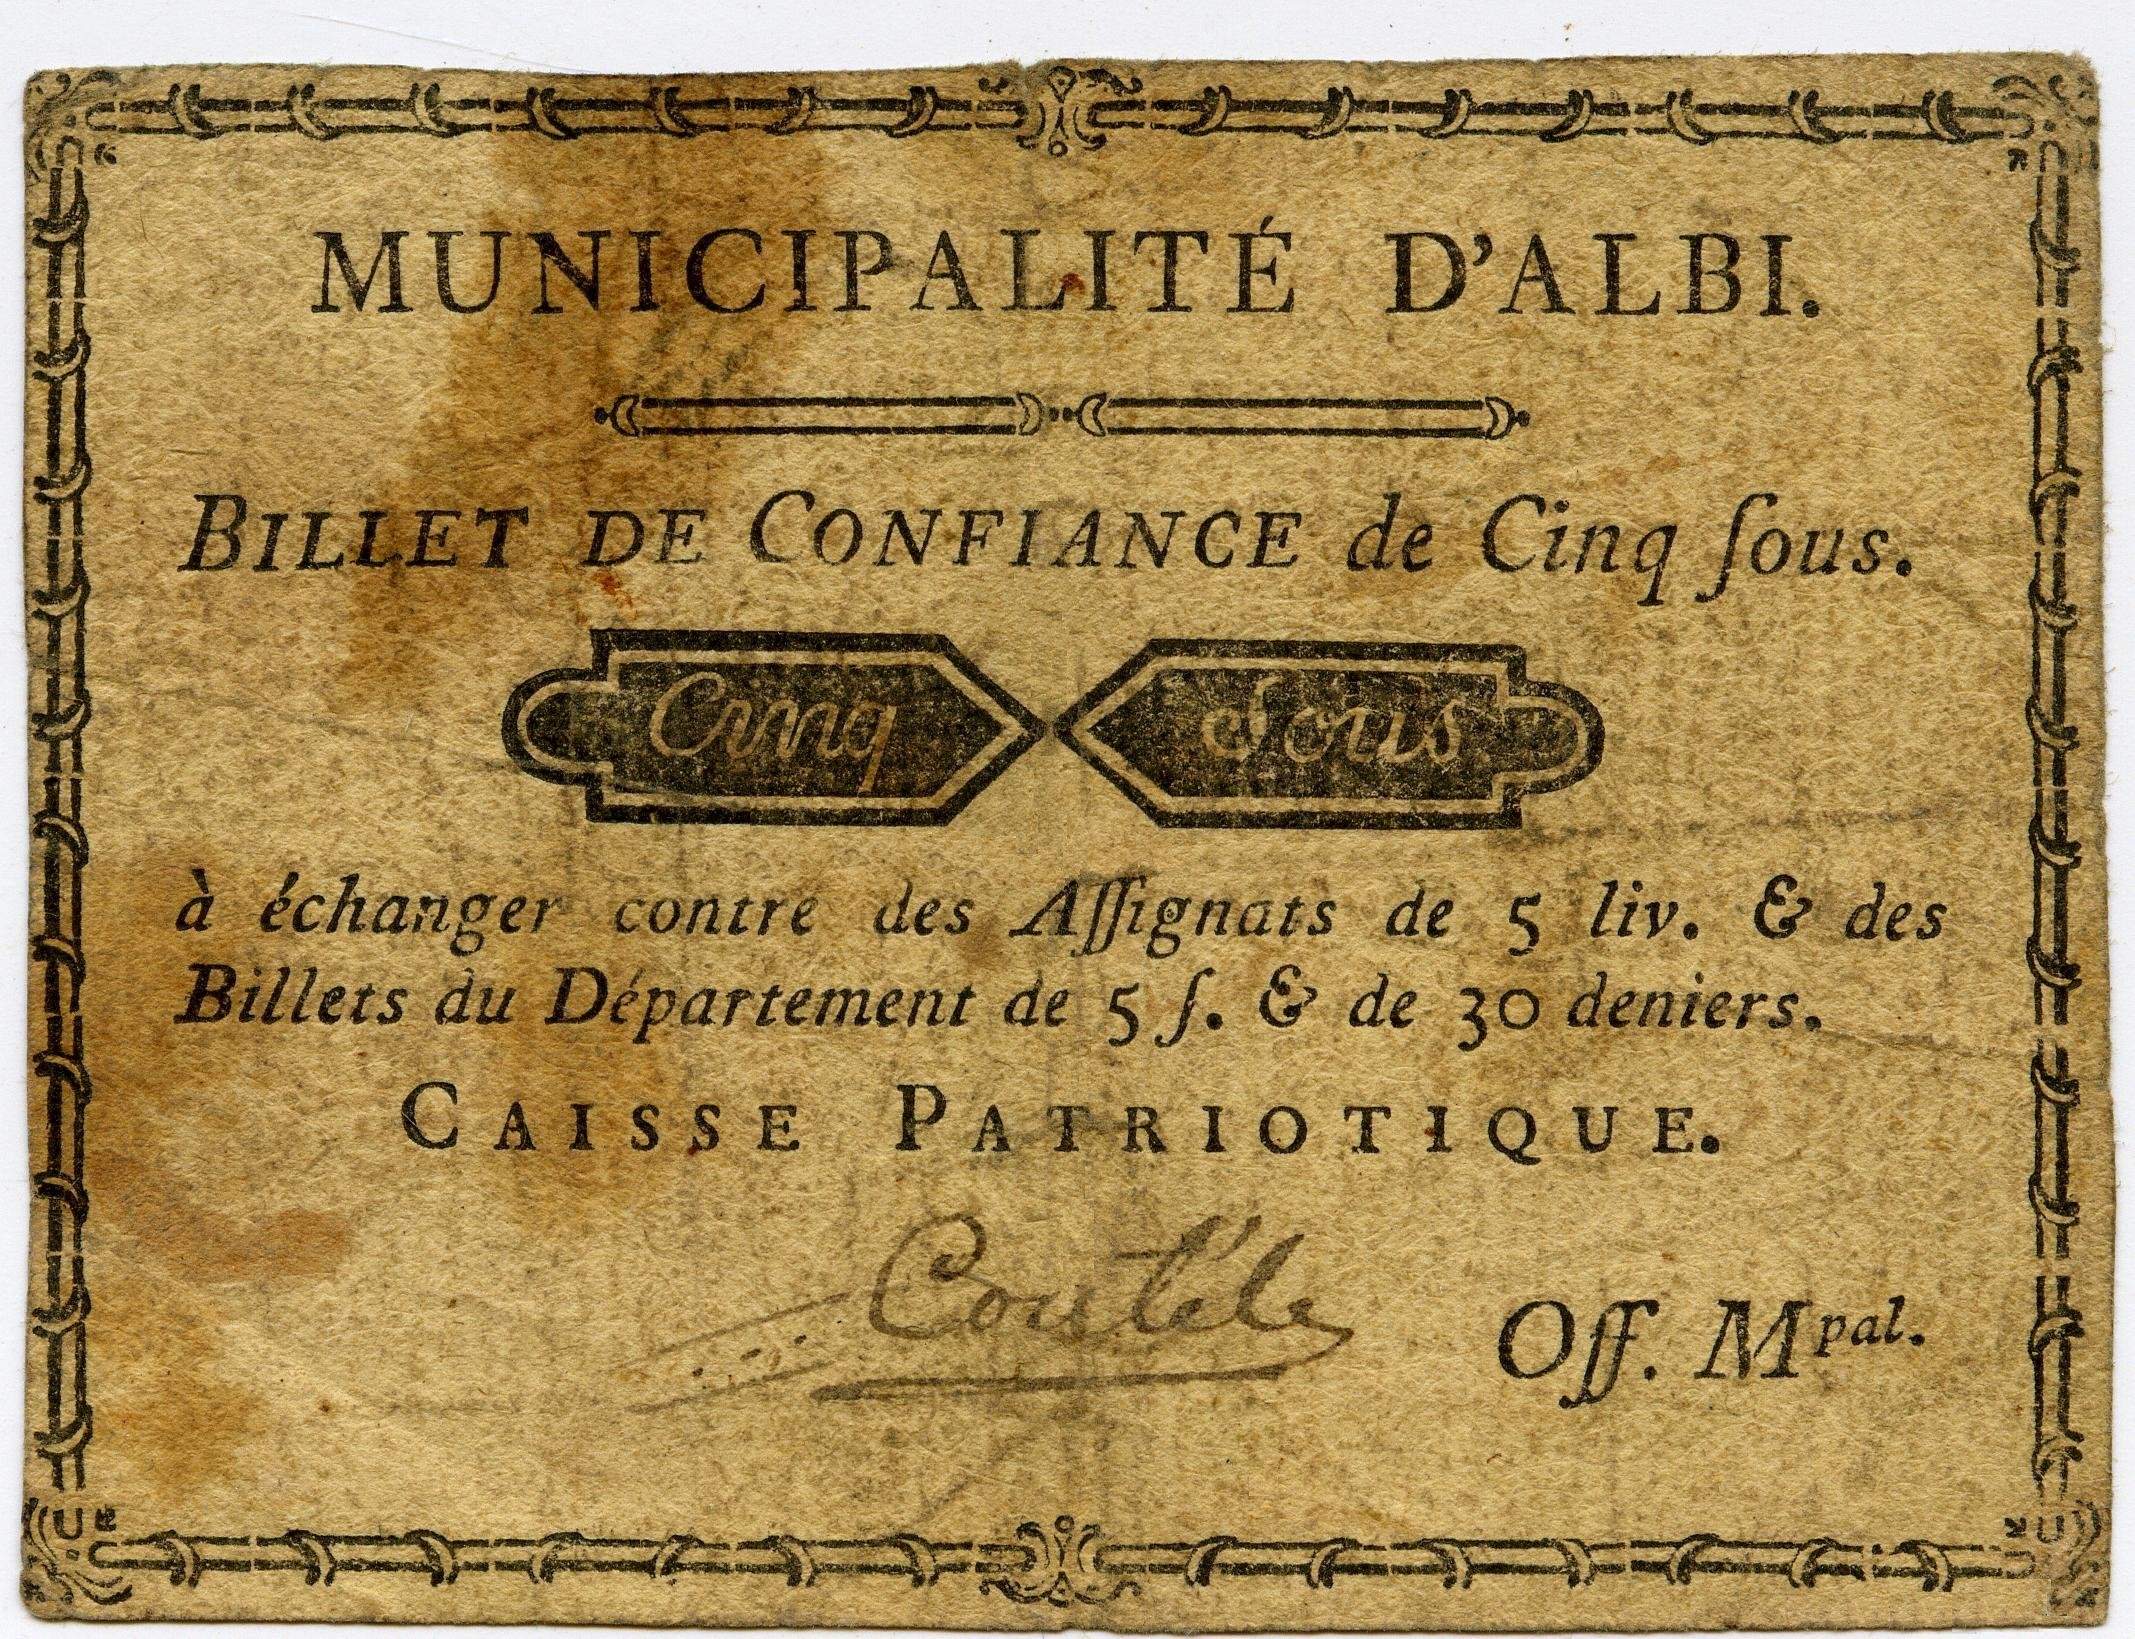 MUNICIPALITÉ D'ALBI.
BILLET DE CONFIANCE de Cinq ſous.
Cinq Sous
à échanger contre des Aſſignats de 5 liv. & des
Billets du Département de 5 ſ. & de 30 deniers.
CAISSE PATRIOTIQUE.
Off. Mpal.